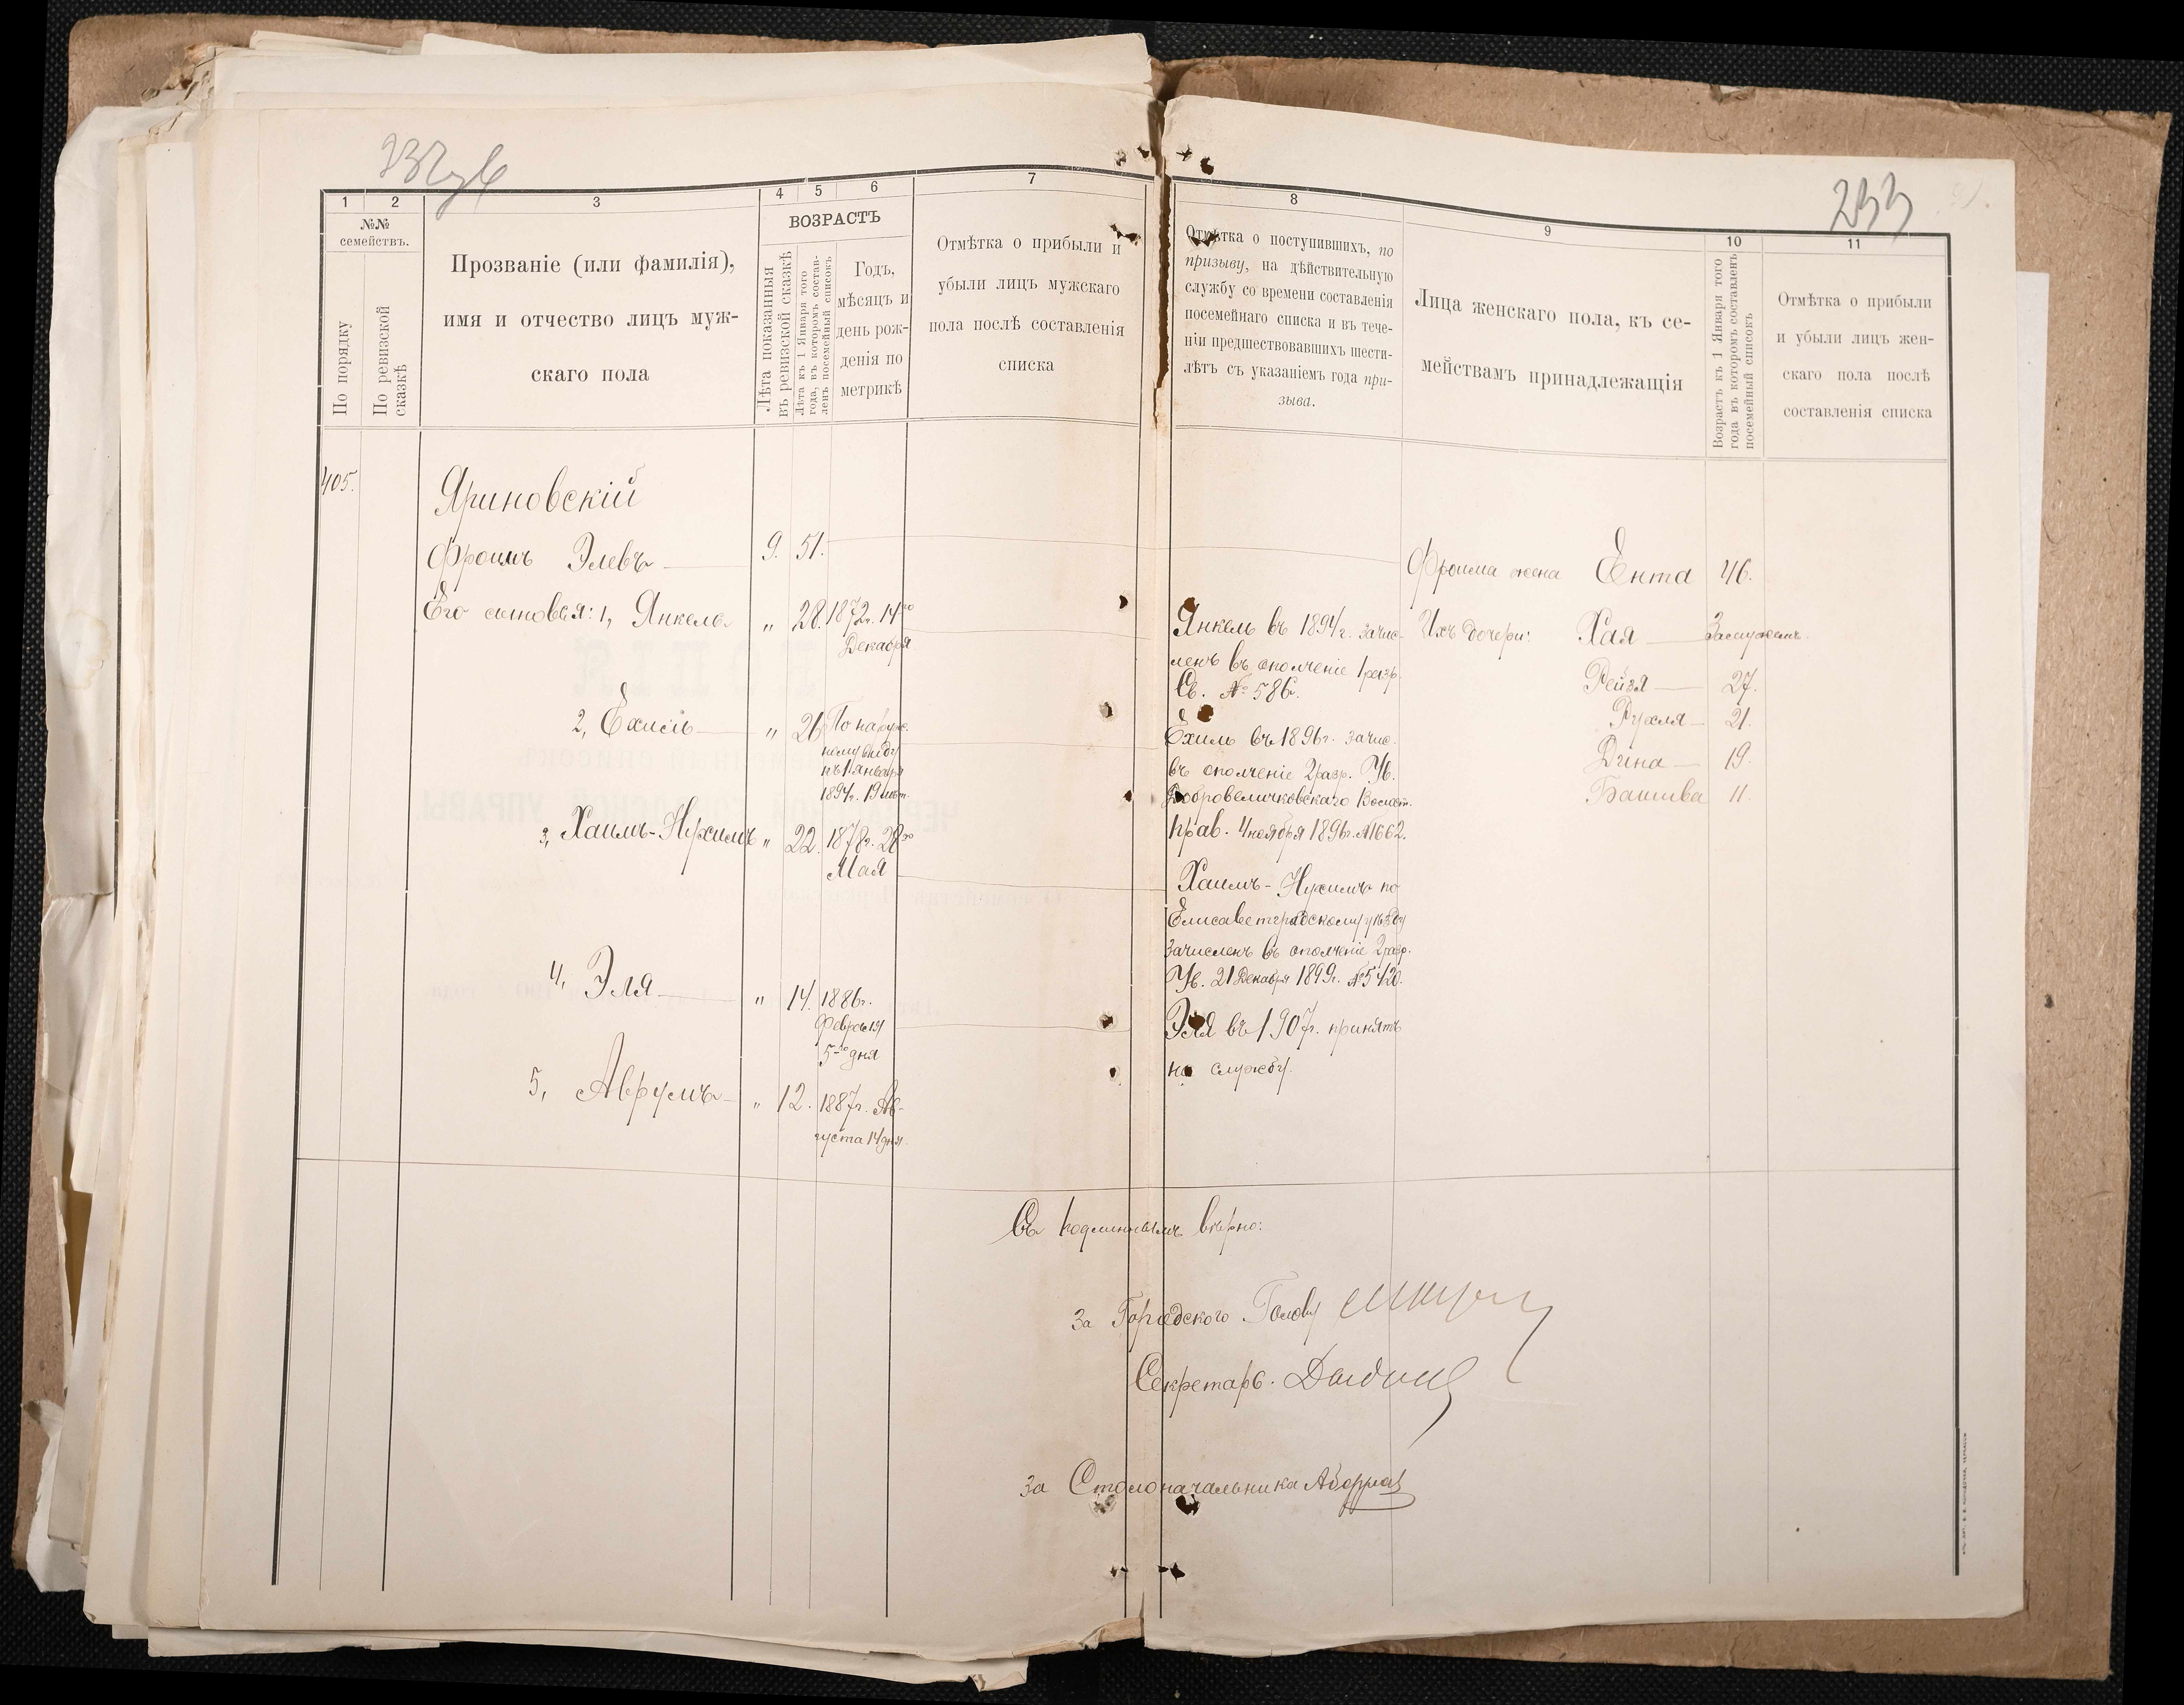 233
1
2
3
4
5
6
7
8
9
10
11
№№
семействъ.
По порядку
По ревизской
сказкѣ
Прозваніе (или фамилія),
имя и отчество лицъ муж-
скаго пола
ВОЗРАСТЪ
Лѣта показанныя
въ ревизской сказкѣ
Лѣта къ 1 Января того
года, въ которомъ состав-
ленъ посемейный списокъ
Годъ,
мѣсяцъ и
день рож-
денія по
метрикѣ
Отмѣтка о прибыли и
убыли лицъ мужскаго
пола послѣ составленія
списка
Отмѣтка о поступившихъ, по
призыву, на дѣйствительную
службу со времени составленія
посемейнаго списка и въ тече-
ніи предшествовавшихъ шести-
лѣтъ съ указаніемъ года при-
зыва.
Лица женскаго пола, къ се-
мействамъ принадлежащія
Возрастъ къ 1 Января того
года въ которомъ составленъ
посемейный списокъ
Отмѣтка о прибыли
и убыли лицъ жен-
скаго пола послѣ
составленія списка
405.
Яриновскій
Фроимъ Элевъ 9. 51.
Его сыновья: 1, Янкель " 28. 1872г. 14го
Декабря
2, Ехиель " 26 По наруж.
ному виду
къ 1 января
1894г. 19 лѣт.
3, Хаимъ-Нухимъ " 22. 1878г. 28го
Мая
4, Эля " 14. 1886г.
Февраля
5-го дня
5, Аврумъ " 12. 1887г. Ав-
густа 14 дня.
Янкель въ 1894г. зачис-
ленъ въ ополченіе 1 разр.
Св. № 586.
Ехиль въ 1896г. зачис.
въ ополченіе 2 разр. Ув.
Добровеличковскаго Волост.
прав. 4 ноября 1896г. №1662.
Хаимъ-Нухимъ по
Елисаветградскому уѣзду
зачисленъ въ ополченіе 2 разр.
Ув. 21 Декабря 1899г. №5420.
Эля въ 1907г. принятъ
на службу.
Фроима жена Ента 46.
Ихъ дочери: Хая Замужемъ.
Рейзя 27.
Рухля 21.
Дина 19.
Башива 11.
Съ подлиннымъ вѣрно:
За Городского Голову
Секретарь.
За Столоначальника